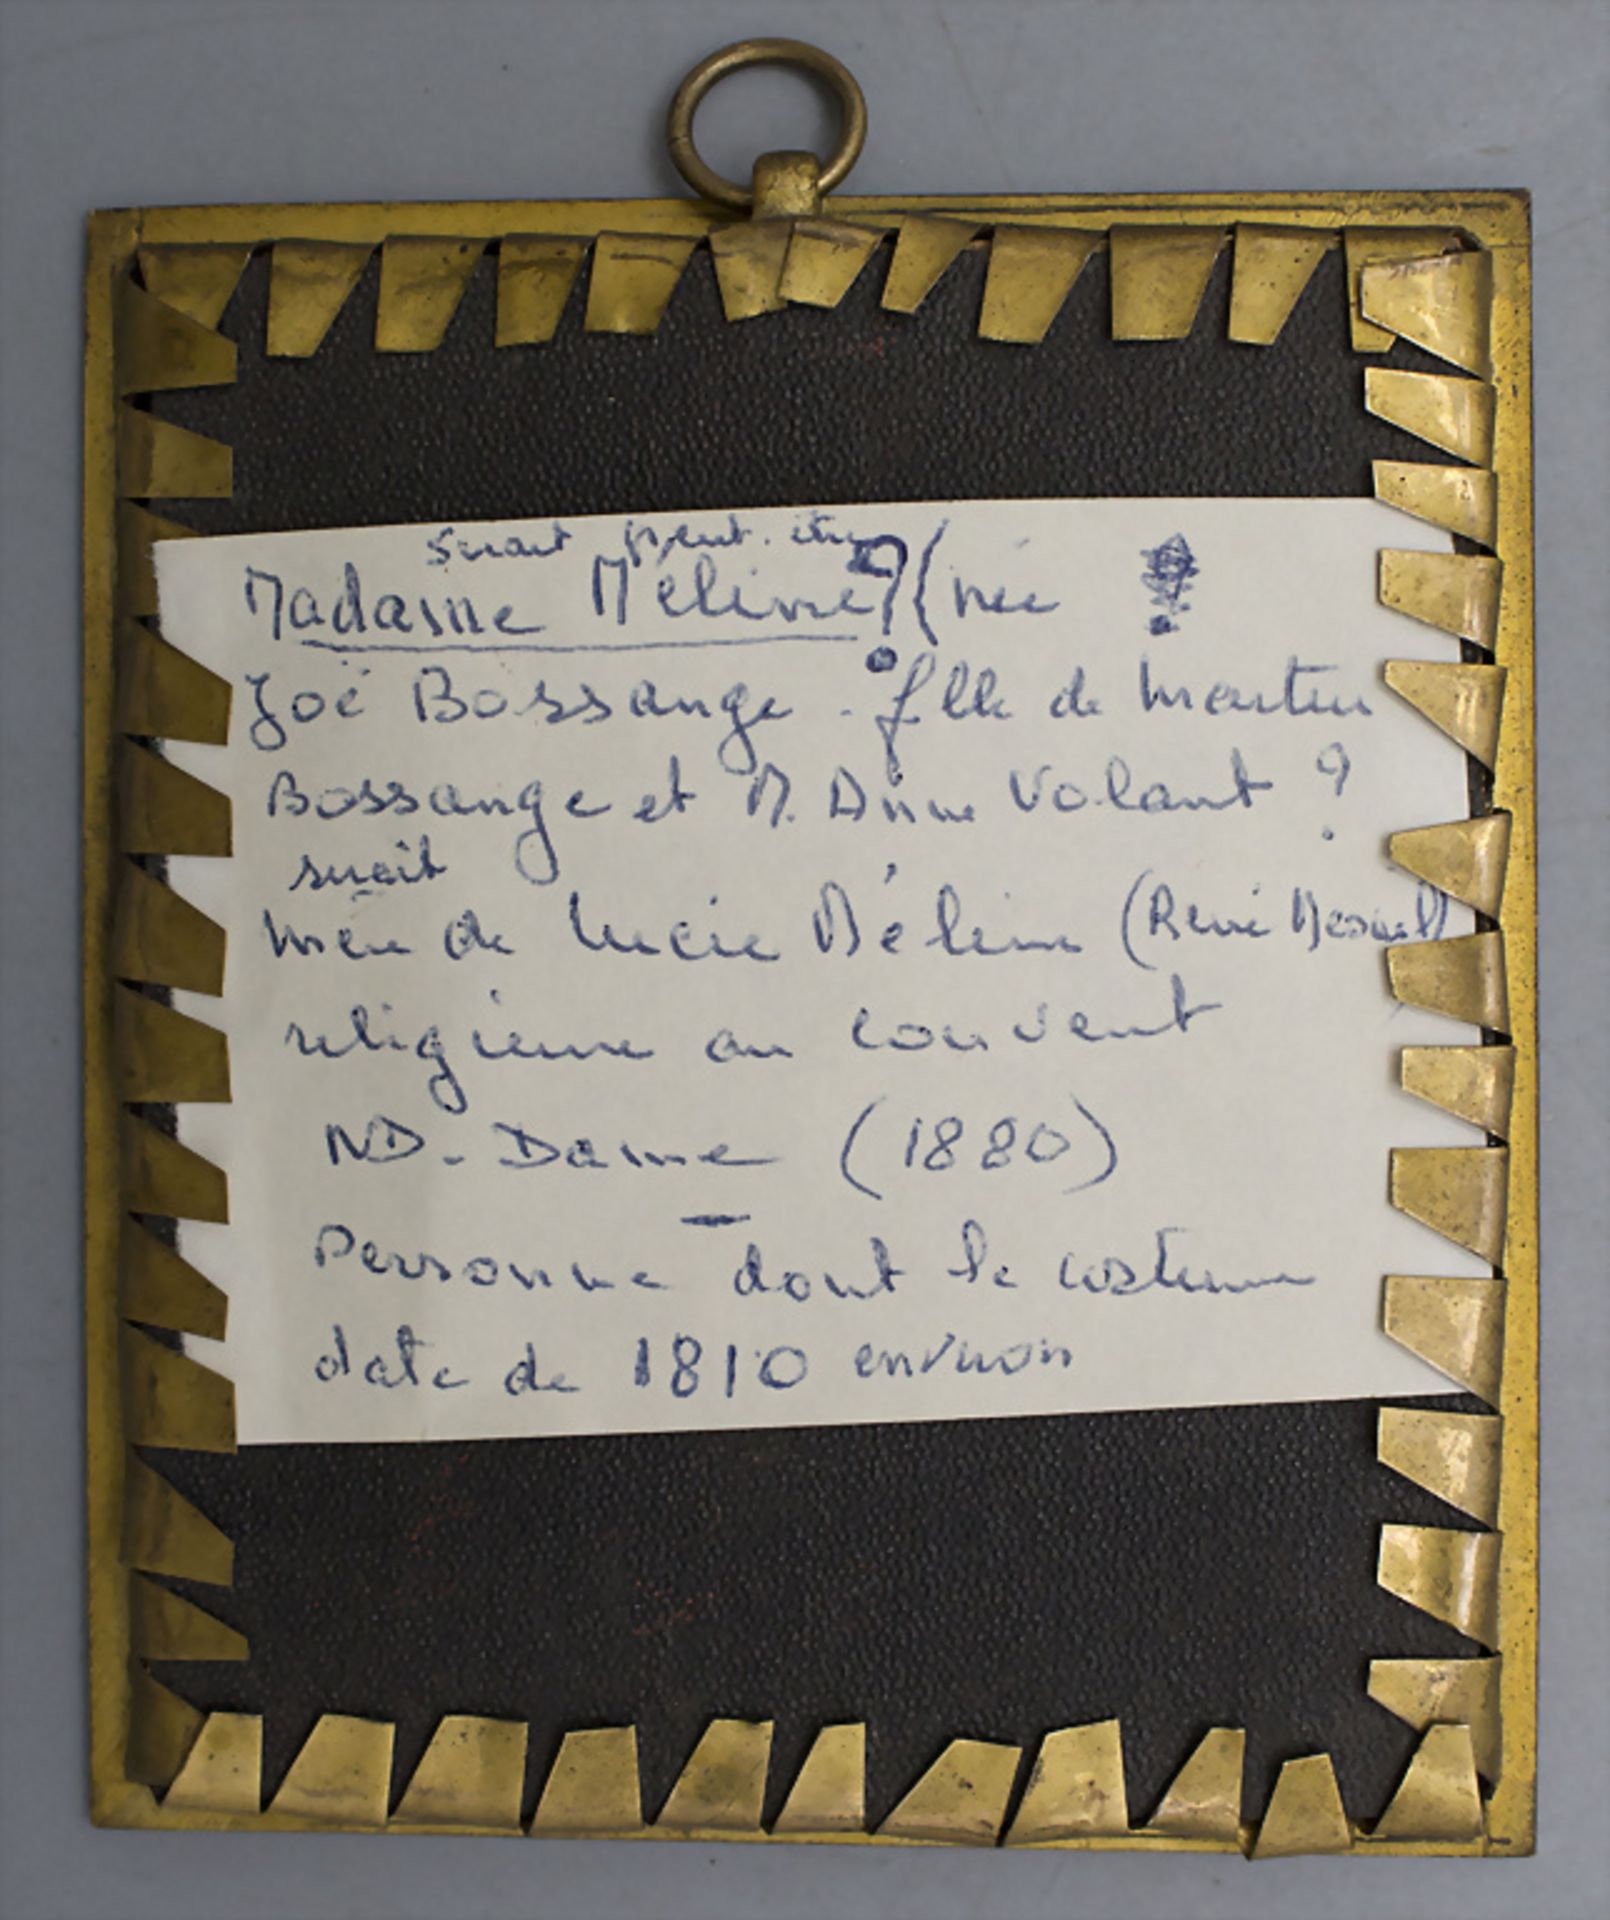 serait peut-être
Madame Méline ? (née
Zoé Bossange - fille de Martin
Bossange et M. Anne Volant ?
serait
mère de Lucie Méline (René
religieuse au couvent
ND - Dame (1880)
Personne dont le costume
date de 1810 environ